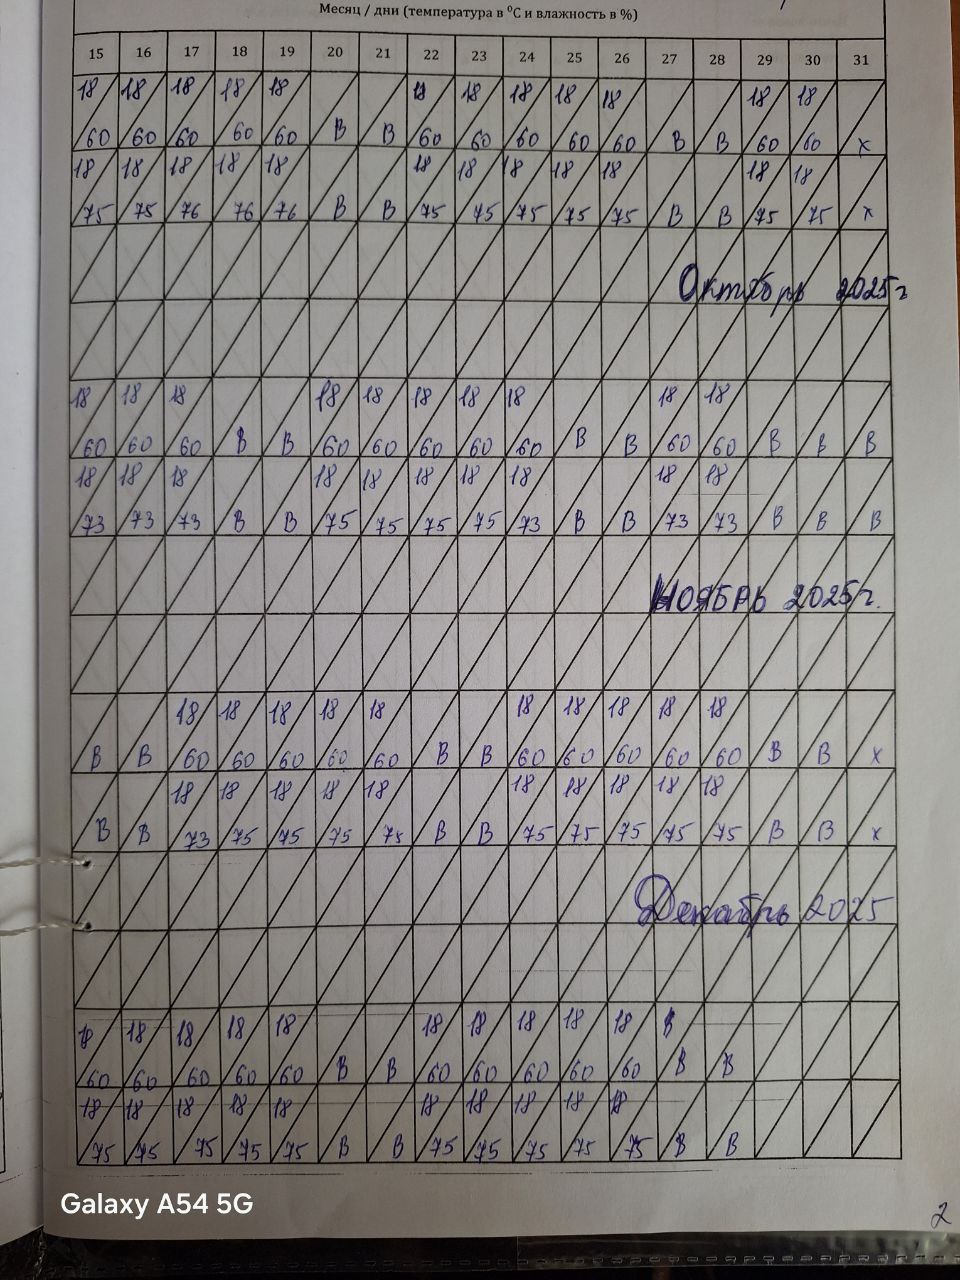 Месяц / дни (температура в ⁰С и влажность в %)
15 16 17 18 19 20 21 22 23 24 25 26 27 28 29 30 31
18 18 18 18 18 18 18 18 18 18 18 18
60 60 60 60 60 В В 60 60 60 60 60 В В 60 60 х
18 18 18 18 18 18 18 18 18 18 18 18
75 75 76 76 76 В В 75 75 75 75 75 В В 75 75 х
Октябрь 2025г
18 18 18 18 18 18 18 18 18 18
60 60 60 В В 60 60 60 60 60 В В 60 60 В В В
18 18 18 18 18 18 18 18 18 18
73 73 73 В В 75 75 75 75 73 В В 73 73 В В В
Ноябрь 2025г.
18 18 18 18 18 18 18 18 18 18
В В 60 60 60 60 60 В В 60 60 60 60 60 В В х
18 18 18 18 18 18 18 18 18 18
В В 73 75 75 75 75 В В 75 75 75 75 75 В В х
Декабрь 2025
18 18 18 18 18 18 18 18 18 18
60 60 60 60 60 В В 60 60 60 60 60 В В
18 18 18 18 18 18 18 18 18 18
75 75 75 75 75 В В 75 75 75 75 75 В В
Galaxy A54 5G
2